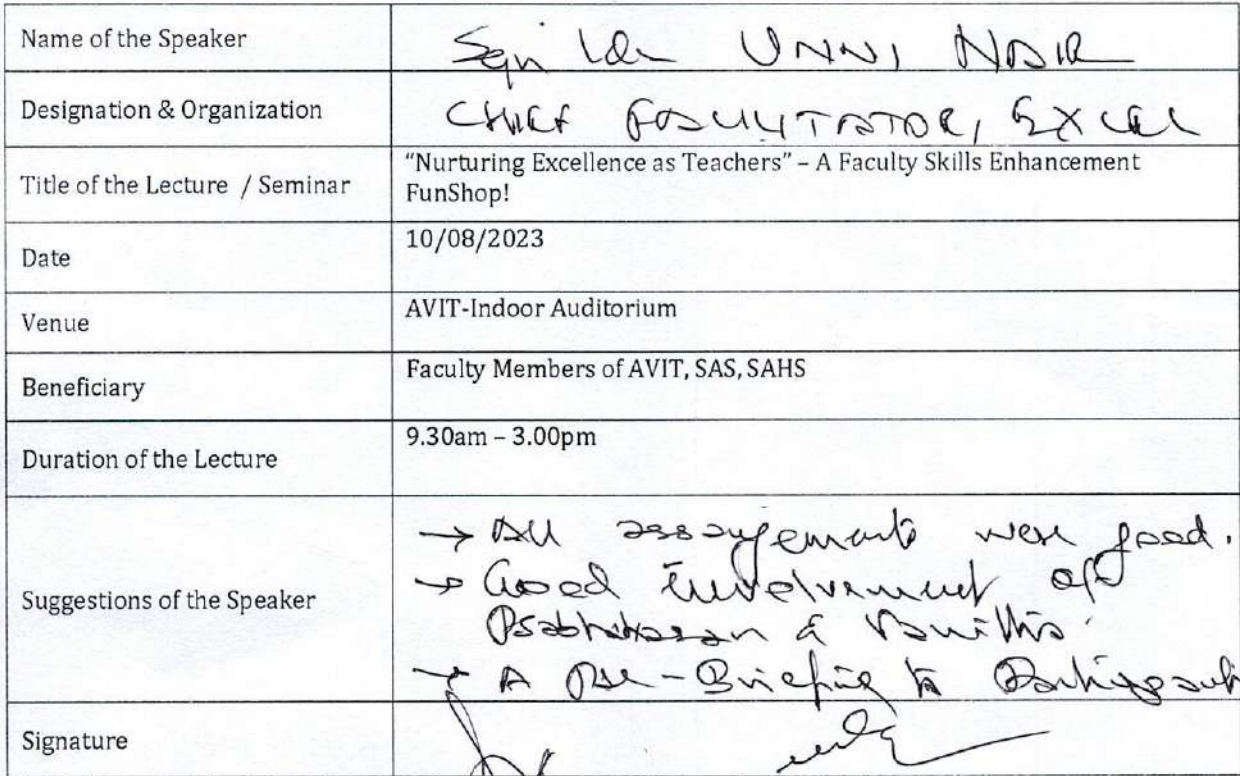 Name of the Speaker
UNNI NAIR
Designation & Organization
CHIEF FACILITATOR, EXCEL
Title of the Lecture / Seminar
“Nurturing Excellence as Teachers” – A Faculty Skills Enhancement
FunShop!
Date
10/08/2023
Venue
AVIT-Indoor Auditorium
Beneficiary
Faculty Members of AVIT, SAS, SAHS
Duration of the Lecture
9.30am – 3.00pm
Suggestions of the Speaker
→ All arrangements were good.
→ Good involvement of
Prabhakaran & Vanitha.
→ A Pre-Briefing to Participants
Signature